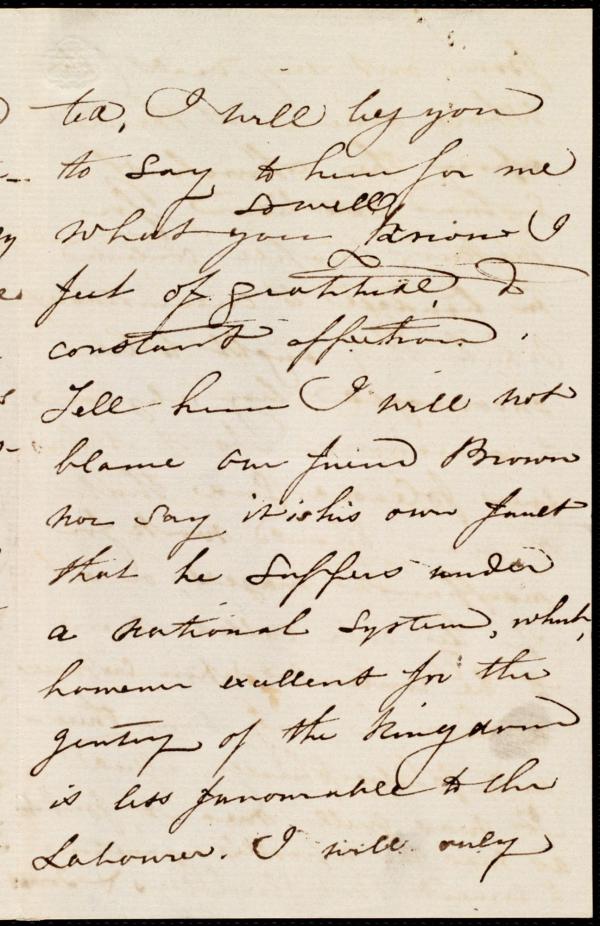 ted, I will beg you
to say to him for me
so well
what you know I
feel of gratitude, &
constant affection.
Tell him I will not
blame our friend Brown
nor say it is his own fault
that he suffers under
a national system, which,
however excellent for the
gentry of the Kingdom
is less favourable to the
Labourer. I will only